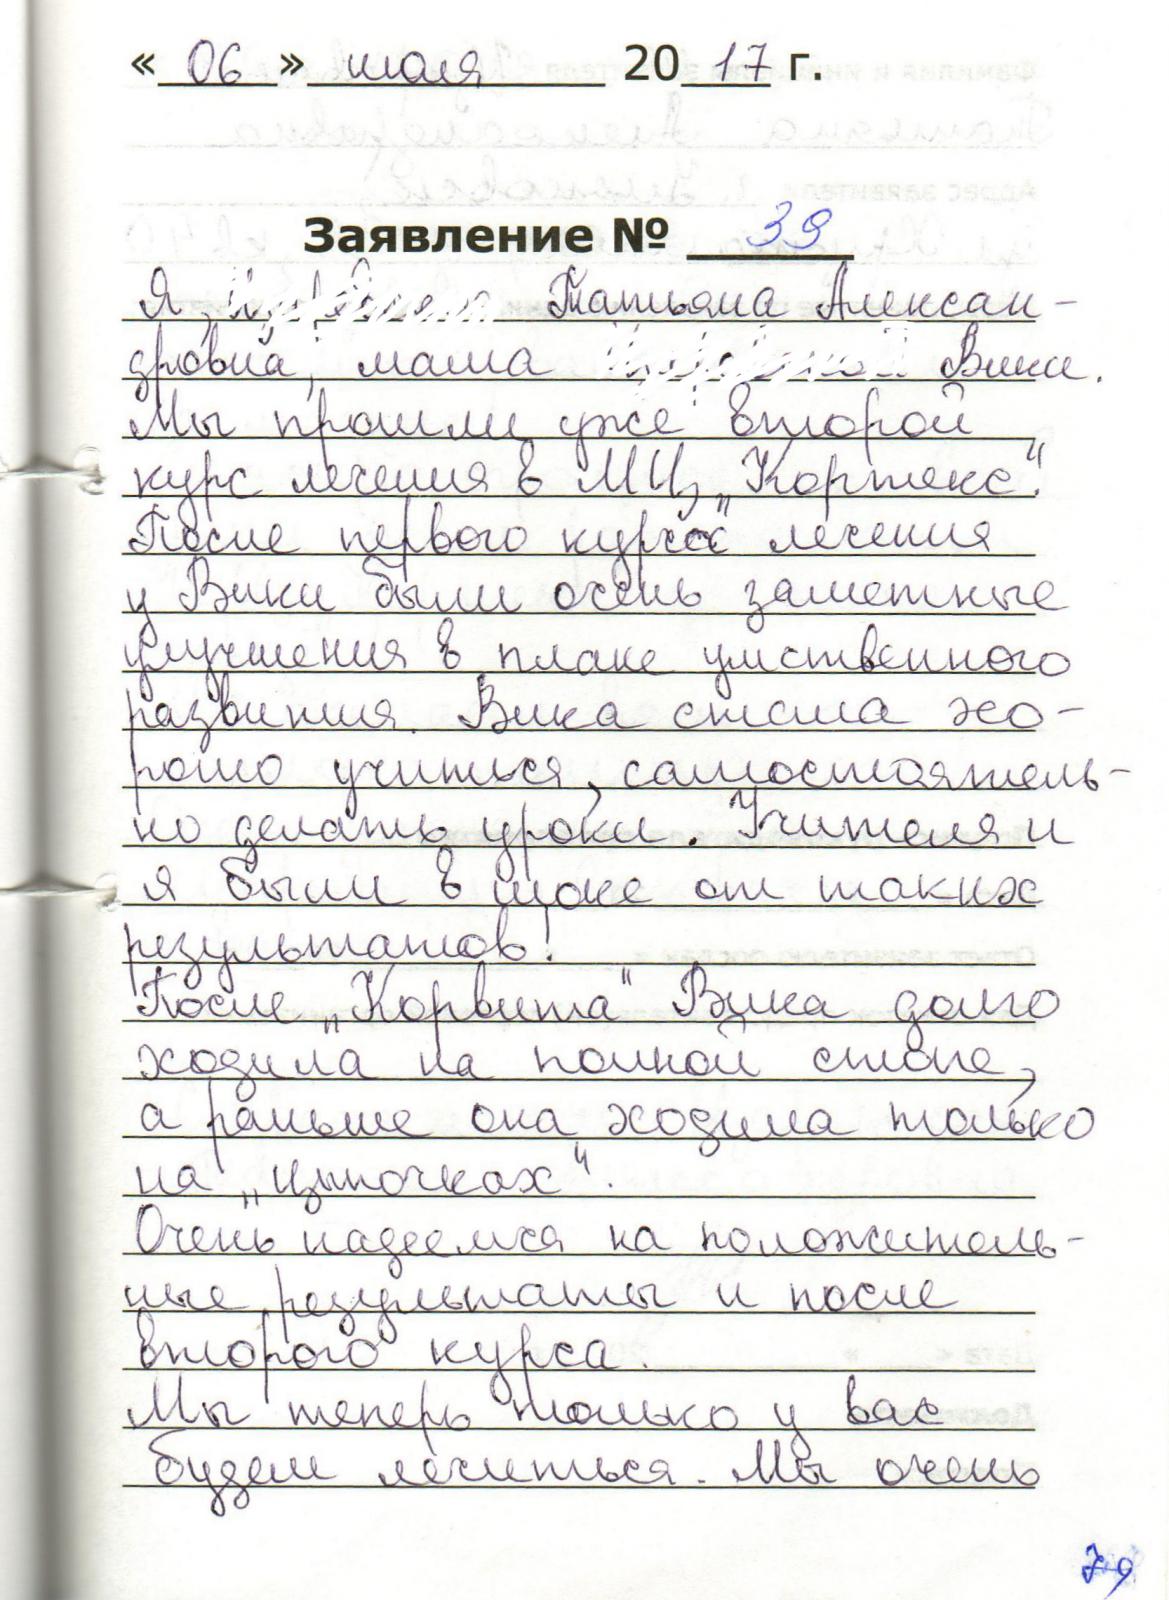 « 06 » июля 20 17 г.
Заявление № 39
Я, Татьяна Алексан-
дровна, мама Вики.
Мы прошли уже второй
курс лечения в МЦ „Кортекс".
После первого курса лечения
у Вики были очень заметные
улучшения в плане умственного
развития. Вика стала хо-
рошо учиться, самостоятель-
но делать уроки. Учителя и
я были в шоке от таких
результатов!
После „Корвита" Вика долго
ходила на полной стопе,
а раньше она ходила только
на „цыпочках".
Очень надеемся на положитель-
ные результаты и после
второго курса.
Мы теперь только у вас
будем лечиться. Мы очень
79